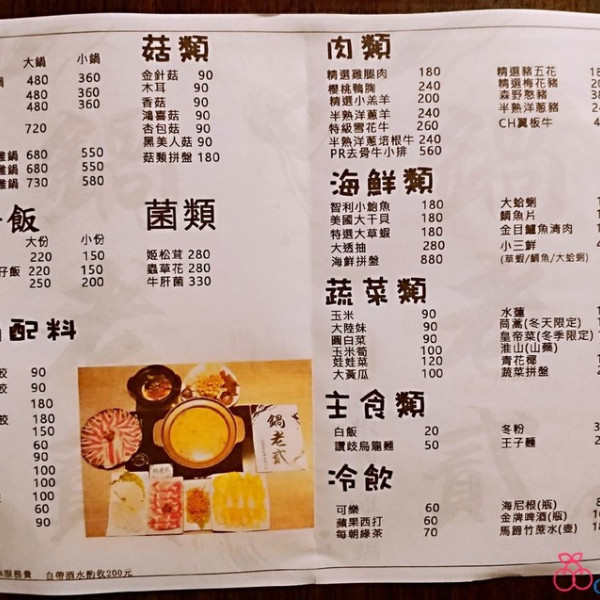 大鍋 小鍋
鍋 480 360
480 360
480 360
720
雞鍋 680 550
雞鍋 680 550
雞鍋 730 580
飯
大份 小份
220 150
仔飯 220 150
250 200
配料
餃 90
餃 90
180
餃 180
150
60
90
100
100
100
60
90
服務費 自帶酒水酌收200元
菇類
金針菇 90
木耳 90
香菇 90
鴻喜菇 90
杏包菇 90
黑美人菇 90
菇類拼盤 180
菌類
姬松茸 280
蟲草花 280
牛肝菌 330
鍋老貳
肉類
精選雞腿肉 180
櫻桃鴨胸 240
精選小羔羊 200
半熟洋蔥羊 240
特級雪花牛 260
半熟洋蔥培根牛 240
PR去骨牛小排 560
精選豬五花 18
精選梅花豬 20
森野憨豬 3
半熟洋蔥豬 24
CH翼板牛 4
海鮮類
智利小鮑魚 180
美國大干貝 180
特選大草蝦 180
大透抽 280
海鮮拼盤 880
大蛤蜊
鯛魚片
金目鱸魚清肉
小三鮮
(草蝦/鯛魚/大蛤蜊)
蔬菜類
玉米 90
大陸妹 90
圓白菜 90
玉米筍 100
娃娃菜 120
大黃瓜 100
水蓮
茼蒿(冬天限定)
皇帝菜(冬季限定)
淮山(山藥)
青花椰
蔬菜拼盤
主食類
白飯 20
讚岐烏龍麵 50
冬粉 3
王子麵 2
冷飲
可樂 60
蘋果西打 60
每朝綠茶 70
海尼根(瓶)
金牌啤酒(瓶)
馬爵竹蔗水(壺) 18